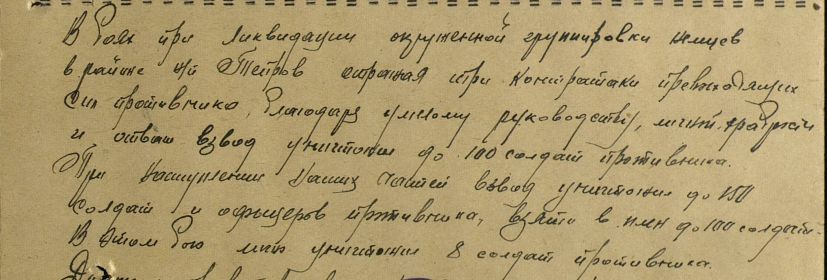 В боях при ликвидации окруженной группировки немцев
в районе Тетров отражая три контратаки превосходящих
сил противника, благодаря умелому руководству, личн. храбрости
и отваги взвод уничтожил до 100 солдат противника.
При наступлении наших частей взвод уничтожил до 150
солдат и офицеров противника, взято в плен до 100 солдат.
В этом бою уничтожил 8 солдат противника.